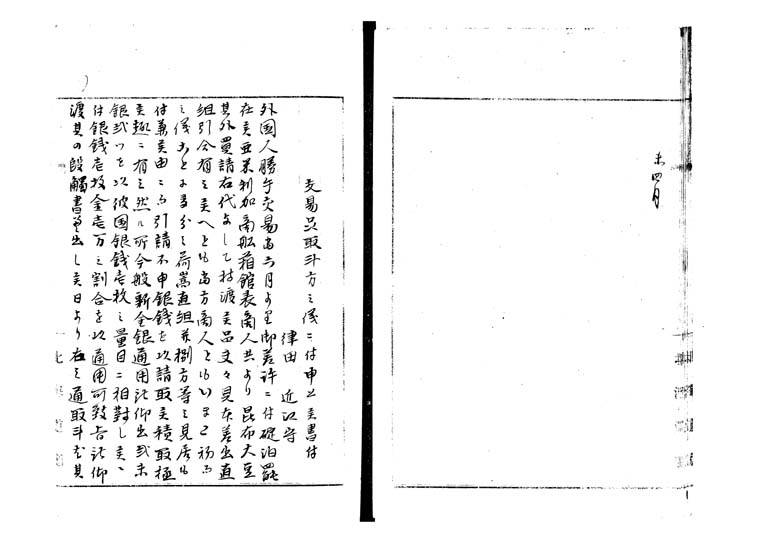 未四月
交易品取斗方之儀ニ付申上候書付
津田 近江守
外国人勝手交易当六月より御差許ニ付碇泊罷
在候亜米利加商船箱館表商人共より昆布大豆
其外買請右代として持渡候品夫々見本差出直
組引合有之候へとも当方商人ともいまた初而
之儀ことに多分之荷嵩直組并捌方等之見居も
付兼候由ニ而引請不申銀銭を以請取候積取極
候趣ニ有之然ル所今般新金銀通用被仰出弐朱
銀弐ツを以彼国銀銭壱枚之量目ニ相対し候ニ
付銀銭壱枚金壱万之割合を以通用可致旨被仰
渡其の段触書差出し候日より右之通取斗尤其